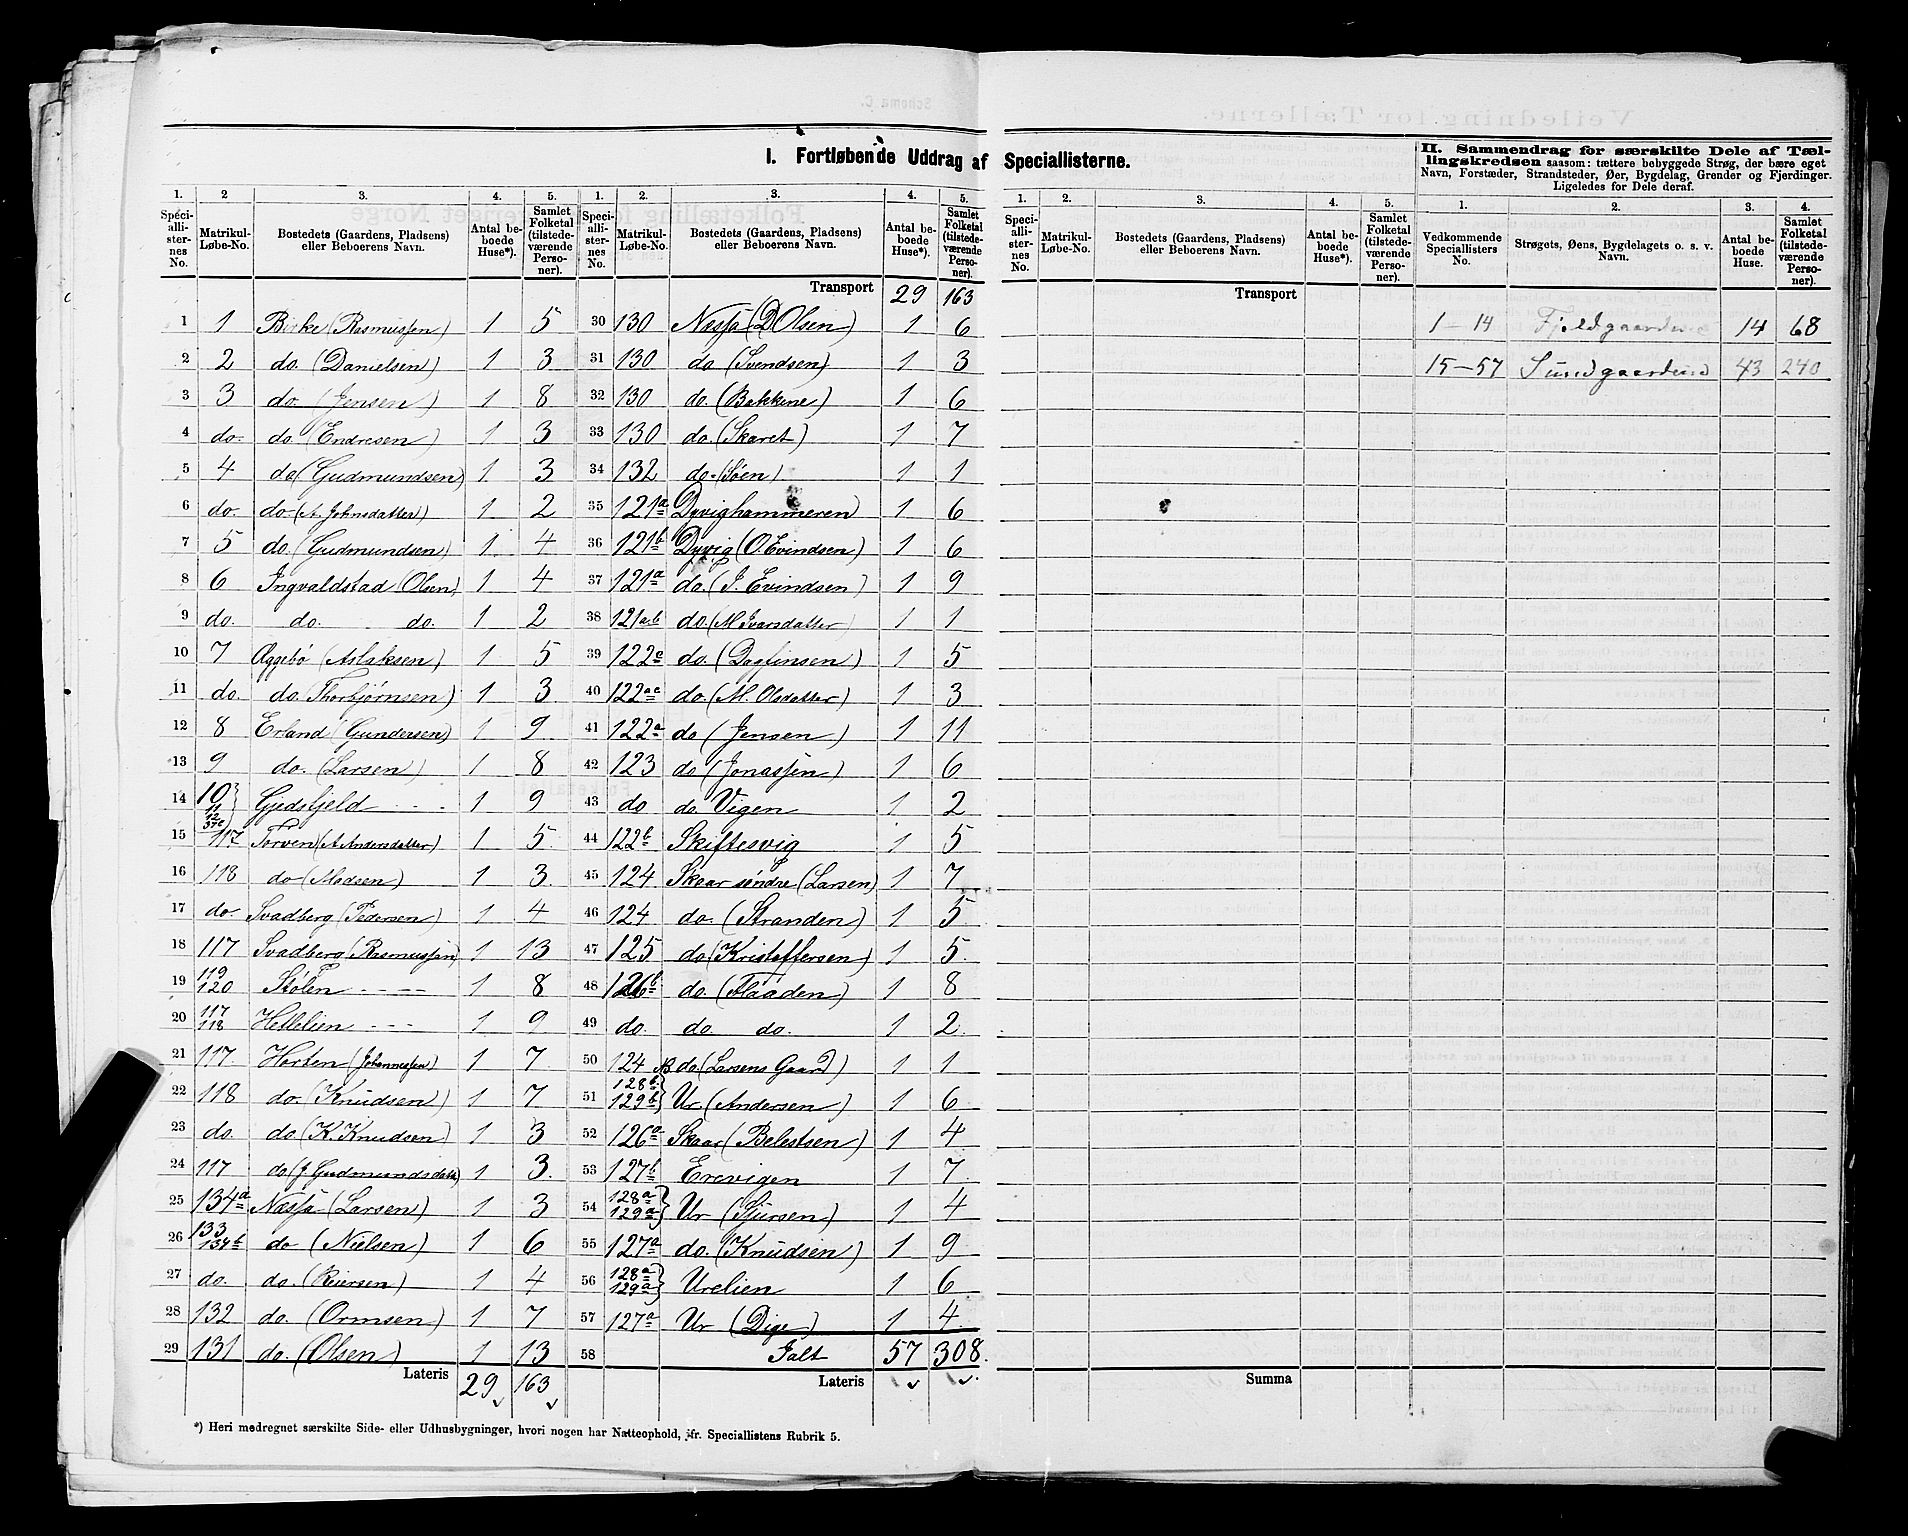 I. Fortløbende Uddrag af Speciallisterne.
II. Sammendrag for særskilte Dele af Tællingskredsen saasom: tættere bebyggede Strøg, der bære eget
Navn, Forstæder, Strandsteder, Øer, Bygdelag, Grender og Fjerdinger.
Ligeledes for Dele deraf.
1. 2 3. 4. 5. 1. 2. 3. 4. 5. 1. 2. 3. 4. 5. 1. 2. 3. 4.
Speciallisternes No. Matrikul-Løbe-No. Bostedets (Gaardens, Pladsens) eller Beboerens Navn. Antal beboede Huse*). Samlet Folketal (tilstedeværende Personer).
Speciallisternes No. Matrikul-Løbe-No. Bostedets (Gaardens, Pladsens) eller Beboerens Navn. Antal beboede Huse*). Samlet Folketal (tilstedeværende Personer).
Speciallisternes No. Matrikul-Løbe-No. Bostedets (Gaardens, Pladsens) eller Beboerens Navn. Antal beboede Huse*). Samlet Folketal (tilstedeværende Personer).
Vedkommende Speciallisters No. Strøgets, Øens, Bygdelagets o. s. v. Navn. Antal beboede Huse. Samlet Folketal (tilstedeværende Personer).
1 1 Birke (Rasmussen) 1 5
2 2 do. (Danielsen) 1 3
3 3 do. (Jensen) 1 8
4 do. do (Endresen) 1 3
5 4 do (Gudmundsen) 1 3
6 do. do. (A. Johnsdatter) 1 2
7 5 do. (Gudmundsen) 1 4
8 6 Ingvaldstad (Olsen) 1 4
9 do. do. do. 1 2
10 7 Æggebø (Aslaksen) 1 5
11 do. do. (Thorbjørnsen) 1 3
12 8 Erland (Gundersen) 1 9
13 9 do. (Larsen) 1 8
14 10 11 12 37c Gjedsfjeld 1 9
15 117 Torven (A. Andersdatter) 1 5
16 118 do (Madsen) 1 3
17 do. Svadberg (Pedersen) 1 4
18 117 Svadberg (Rasmussen) 1 13
19 119 120 Stølen 1 8
20 117 118 Hellelien 1 9
21 117. Horten (Johannessen) 1 7
22 118 do. (Knudsen) 1 7
23 do. do (K. Knudsen) 1 3
24 117 do (J. Gudmundsdatt) 1 3.
25 134a Næssja (Larsen) 1 3
26 133 134b do (Nielsen) 1 6
27 do. do. (Reiersen) 1 4
28 132 do. (Ormsen) 1 7
29 131 do. (Olsen) 1 13
Lateris 29 163
Transport 29 163
30 130 Næssja (D Olsen) 1 6
31 130 do (Svendsen) 1 3
32 130 do. (Bakkene) 1 6
33 130 do. (Skaret) 1 7
34 132 do. (Søen) 1 1
35 121a Dyvighammeren 1 6
36 121b Dyvig (O. Evindsen) 1 6
37 121a do. (J. Evindsen) 1 9
38 121ab do. (M Ivarsdatter) 1 1
39 122c do. (Dagfinsen) 1 5
40 122ac do. (M. Olsdatter) 1 3
41 122a do (Jensen) 1 11
42 123 do (Jonassen) 1 6
43 do do. Vigen 1 2
44 122b Skiftesvig 1 5
45 124 Skaar søndre (Larsen) 1 7
46 124 do. (Stranden) 1 5
47 125 do (Kristoffersen) 1 5
48 126b do. (Flaaden) 1 8
49 do. do do. 1 2.
50 124 do (Larsens Gaard) 1 1
51 128b 129b Ur (Andersen) 1 6
52 126a Skaar (Belestsen) 1 4
53 127b Erevigen 1 7
54 128a 129a Ur (Sjursen) 1 4
55 127a do. (Knudsen) 1 9
56 128a 129a Urelien 1 6
57 127a Ur (Dige) 1 4
58 Ialt 57 308.
Lateris
Transport
Summa
1-14 Fjeldgaardene 14 68
15-57 Sundgaardene 43 240
*) Heri medregnet særskilte Side- eller Udhusbygninger, hvori nogen har Natteophold, jfr. Speciallistens Rubrik 5.